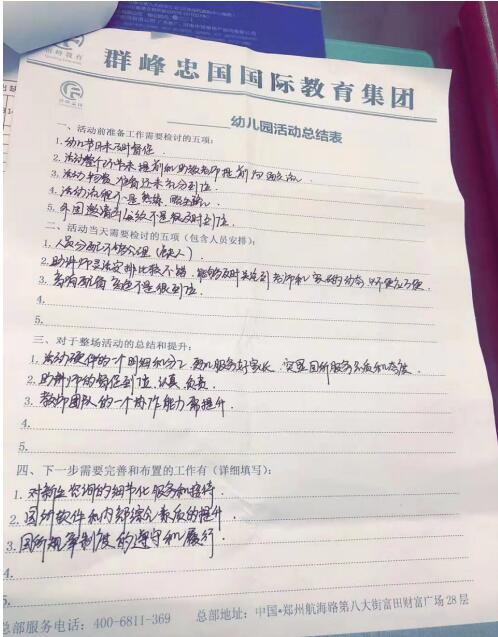 群峰教育
群峰忠国国际教育集团
幼儿园活动总结表
一、活动前准备工作需要检讨的五项:
1.幼儿节日未及时督促
2.活动整个环节未提前和助教老师提前沟通
3.活动物资准备还未充分到位
4.活动流程不是熟练
5.外围邀请不是很及时到位.
二、活动当天需要检讨的五项(包含人员安排):
1.人员分配不够合理(缺人).
2.助教师灵活安排比较不错.能够及时关注到老师和家长的动态
3.音响配备 不是很到位.
4.
5.
三、对于整场活动的总结和提升:
1.活动硬件的一个明细和分工.更好服务好家长.突显园所服务品质和态度
2.助教师的督促到位.认真.负责.
3.教师团队的一个协作能力需提升.
4.
5.
四、下一步需要完善和布置的工作有(详细填写):
1.对新生咨询的细节化服务和接待.
2.园所软件和内部综合素质的提升
3.园所规章制度的遵守和履行.
总部服务电话:400-6811-369
总部地址:中国•郑州航海路第八大街富田财富广场28层